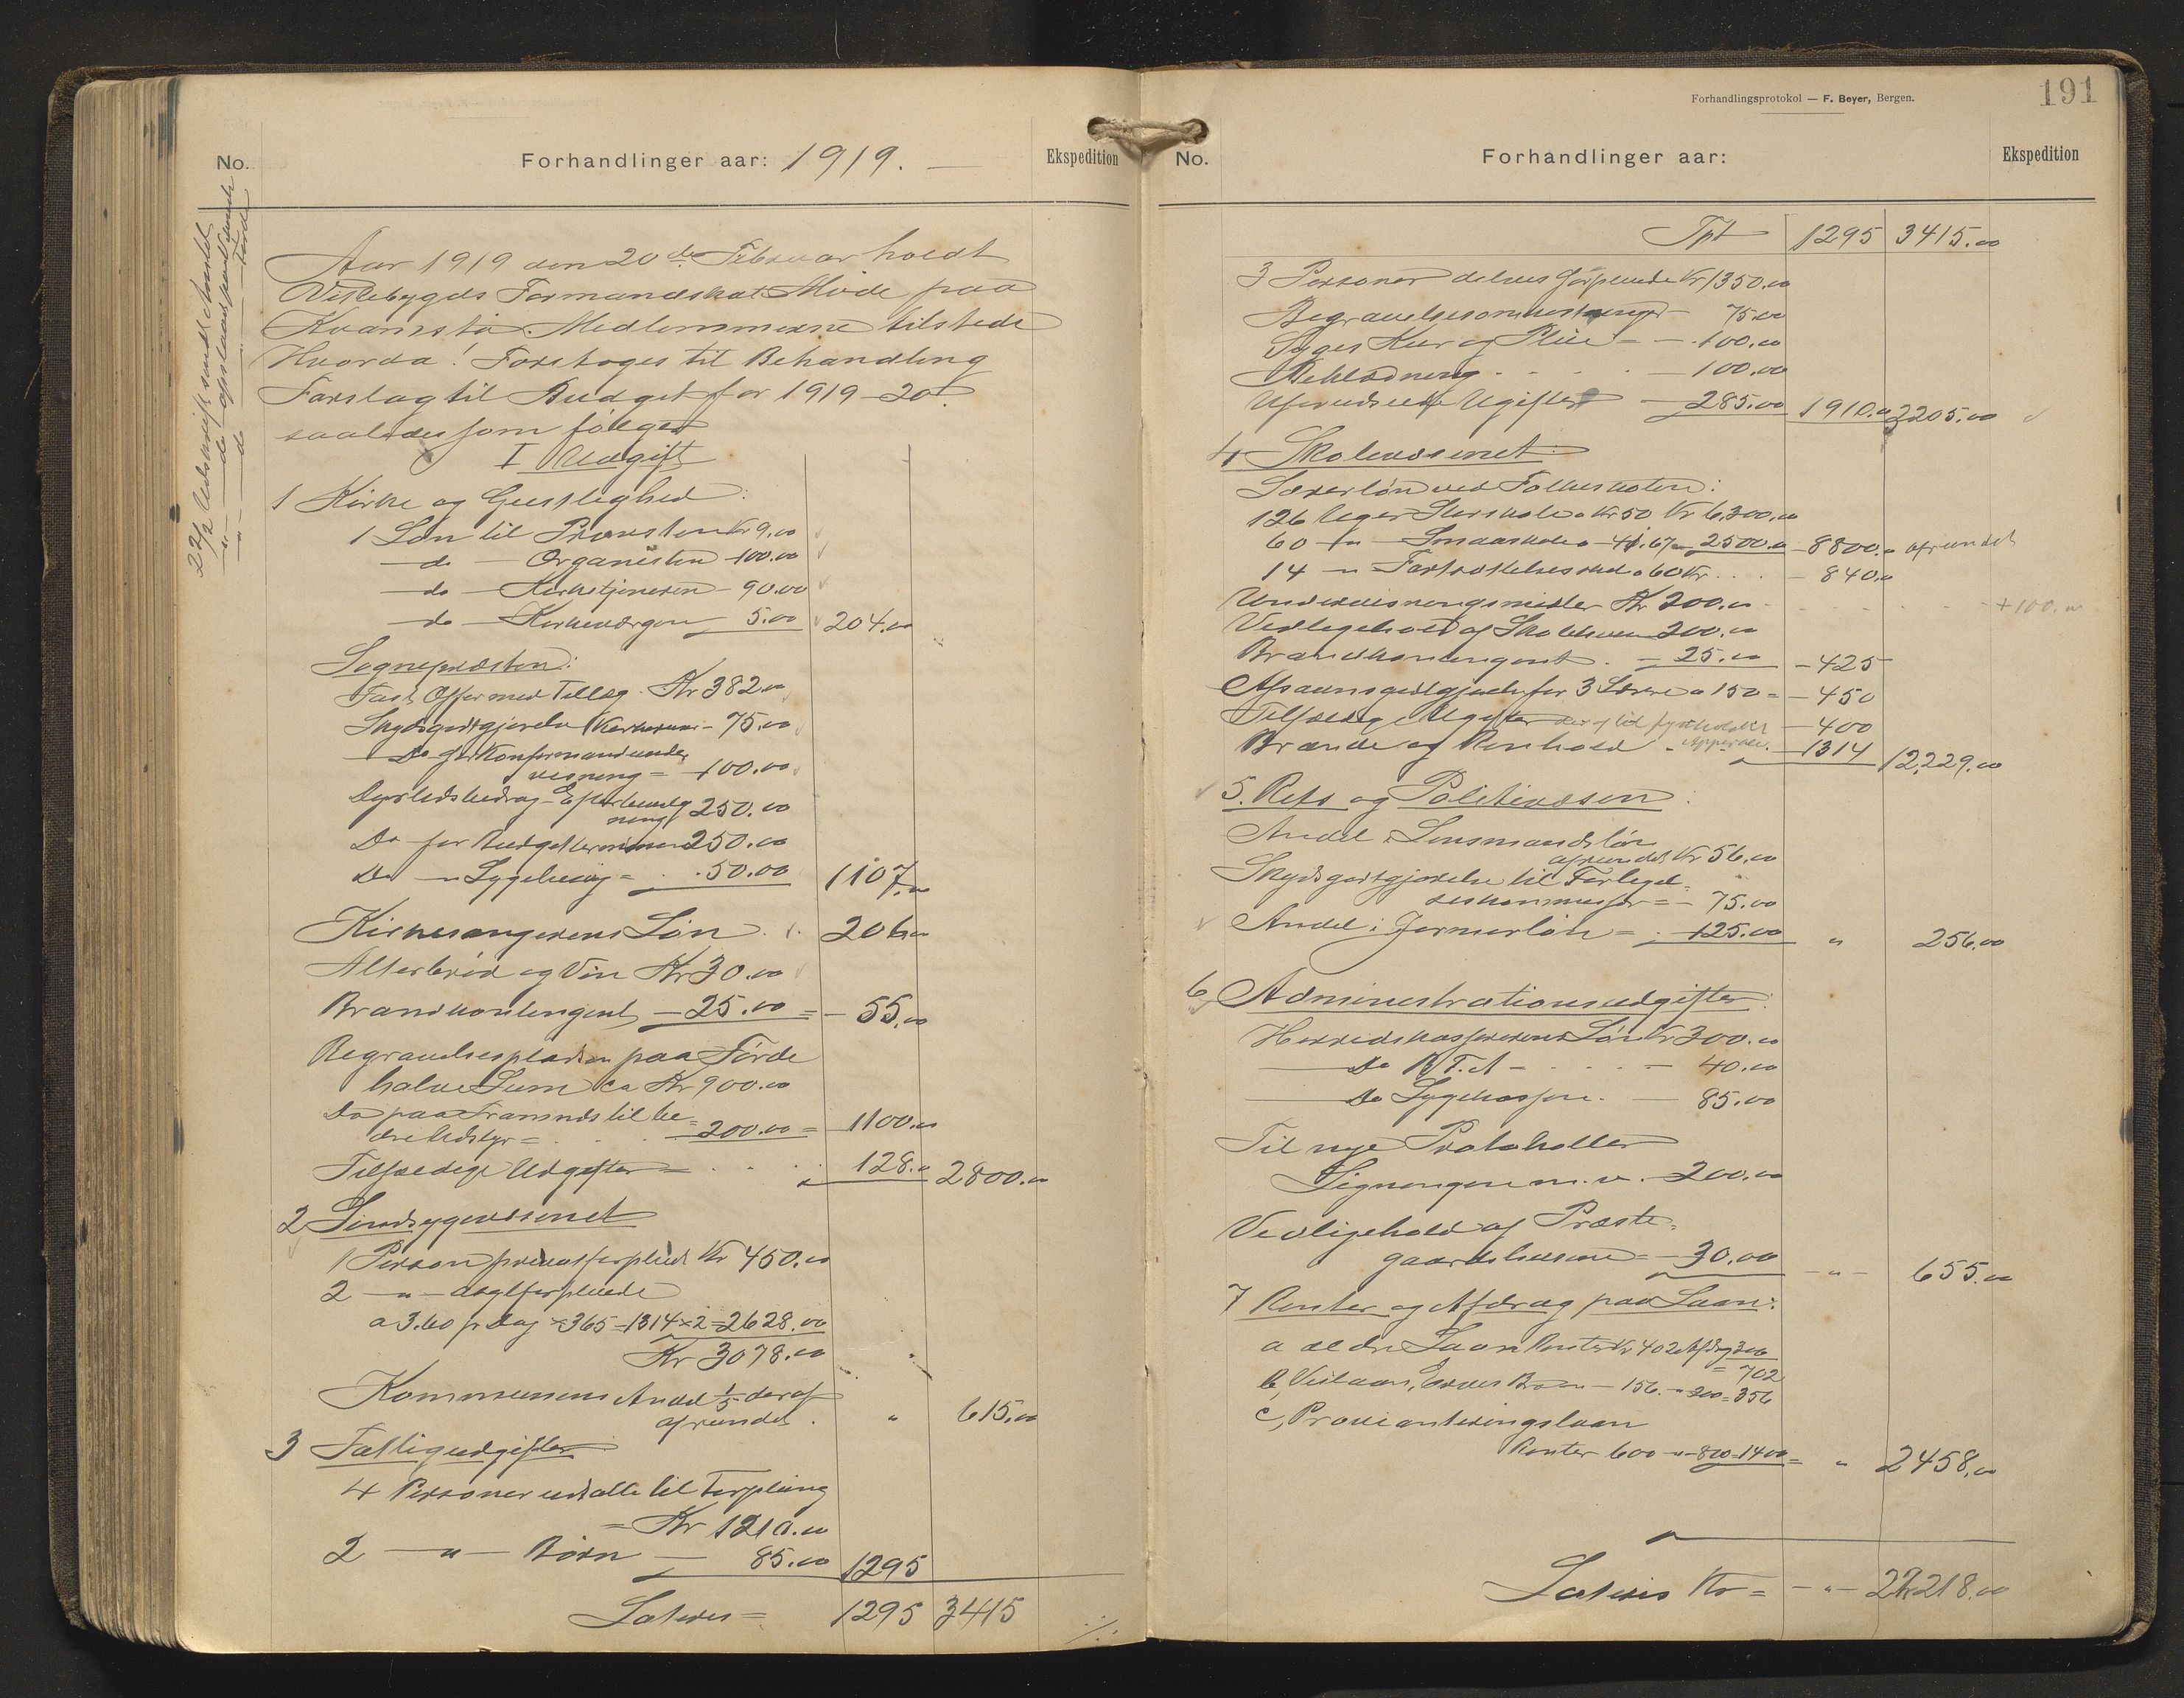 No.
Forhandlinger aar: 1919. —
Ekspedition
22/2 Udskrift sendt
Aar 1919 den 20de Februar holdt
Vikebygds Formandskab Møde paa
Kvamsø. Medlemmerne tilstede
Hvorda! Foretoges til Behandling
Forslag til Budget for 1919-20
saaledes som følger
I Udgift
1 Kirke og Geistlighed:
1 Løn til Præsten Kr 9.00
do — Organisten — 100.00
do — Kirketjeneren — 90.00
do — Kirkeværgen 5.00 204.00
Sognepræsten:
Fast Offer med Tillæg . Kr 382.00
Skydsgodtgjørelse — 75.00
Do for Konfirmandunder
visning = — 100.00
Dyrtidsbidrag 250.00
Do for Budgetterminen 250.00
Do — 50.00 1107.00
Kirkesangerens Løn . 206.00
Alterbrød og Vin Kr 30.00
Brandkontingent — 25.00 = — 55.00
Begravelsespladsen paa Førde
halve Sum ca Kr 900.00
Do paa
200.00 = 1100.00
Tilfældige Udgifter = 128.00 2800.00
2 Sindsygevæsenet
1 Person privatforpleiet Kr 450.00
2 — " — asylforpleiede
a 3.60 pr Dag × 365 = 1314 × 2 = 2628.00
Kr 3078.00
Kommunens Andel 1/5 deraf
afrundet . " 615.00
3 Fattigudgifter
4 Personer udsatte til Forpleining
= Kr 1210.00
2 — " — Børn — 85.00 1295
Lateris = 1295 3415
./.
Forhandlingsprotokol — F. Beyer, Bergen.
191
No.
Forhandlinger aar:
Ekspedition
Tpt 1295 3415.00
3 Personer delvis forpleiede Kr 1350.00
Begravelsesomkostninger — 75.00
Syges Kur og Pleie — — 100.00
Beklædning — 100.00
Uforudseede Udgifter — 285.00 1910.00 3205.00
4 Skolevæsenet:
Lærerløn ved Folkeskolen:
126 Uger Storskole a Kr 50 Kr 6,300.00
60 — " — Smaaskole a — 41.67 = 2500.00 — 8800.00 afrundet
14 — " Fortsættelsesskole a 60 Kr . . . — 840.00
Undervisningsmidler Kr 200.00 + 100.00
Vedligehold af Skolehusene 200.00
Brandkontingent . — 25.00 — 425
Afsavnsgodtgjørelse for 3 Lærere a 150 = — 450
Tilfældige Udgifter — 400
Brænde og Renhold — 1314 12,229.00
5. Rets og Politivæsen:
Andel i Lensmandsløn
afrundet Kr 56.00
Skydsgodtgjørelse til Forligel-
seskommissær = — 75.00
Andel i Jormorløn = . 125.00 " 256.00
6 Administrationsudgifter:
Herredskassererens Løn Kr 300.00
— Do — 40.00
— Do Sygekassen . — 85.00
Til nye Protokoller
Ligningen m. v. — 200.00
Vedligehold af Præste-
gaardshusene = — 30.00 — " — 655.00
7 Renter og Afdrag paa Laan:
a ældre Laan Renter Kr 402 Afdrag 300
= 702
b, Veilaan, — 156. — " 200 = 356
c, Provianteringslaan
Renter 600 — " — 800 = 1400 = " 2458.00
Lateris Kr = — " — 22,218.00